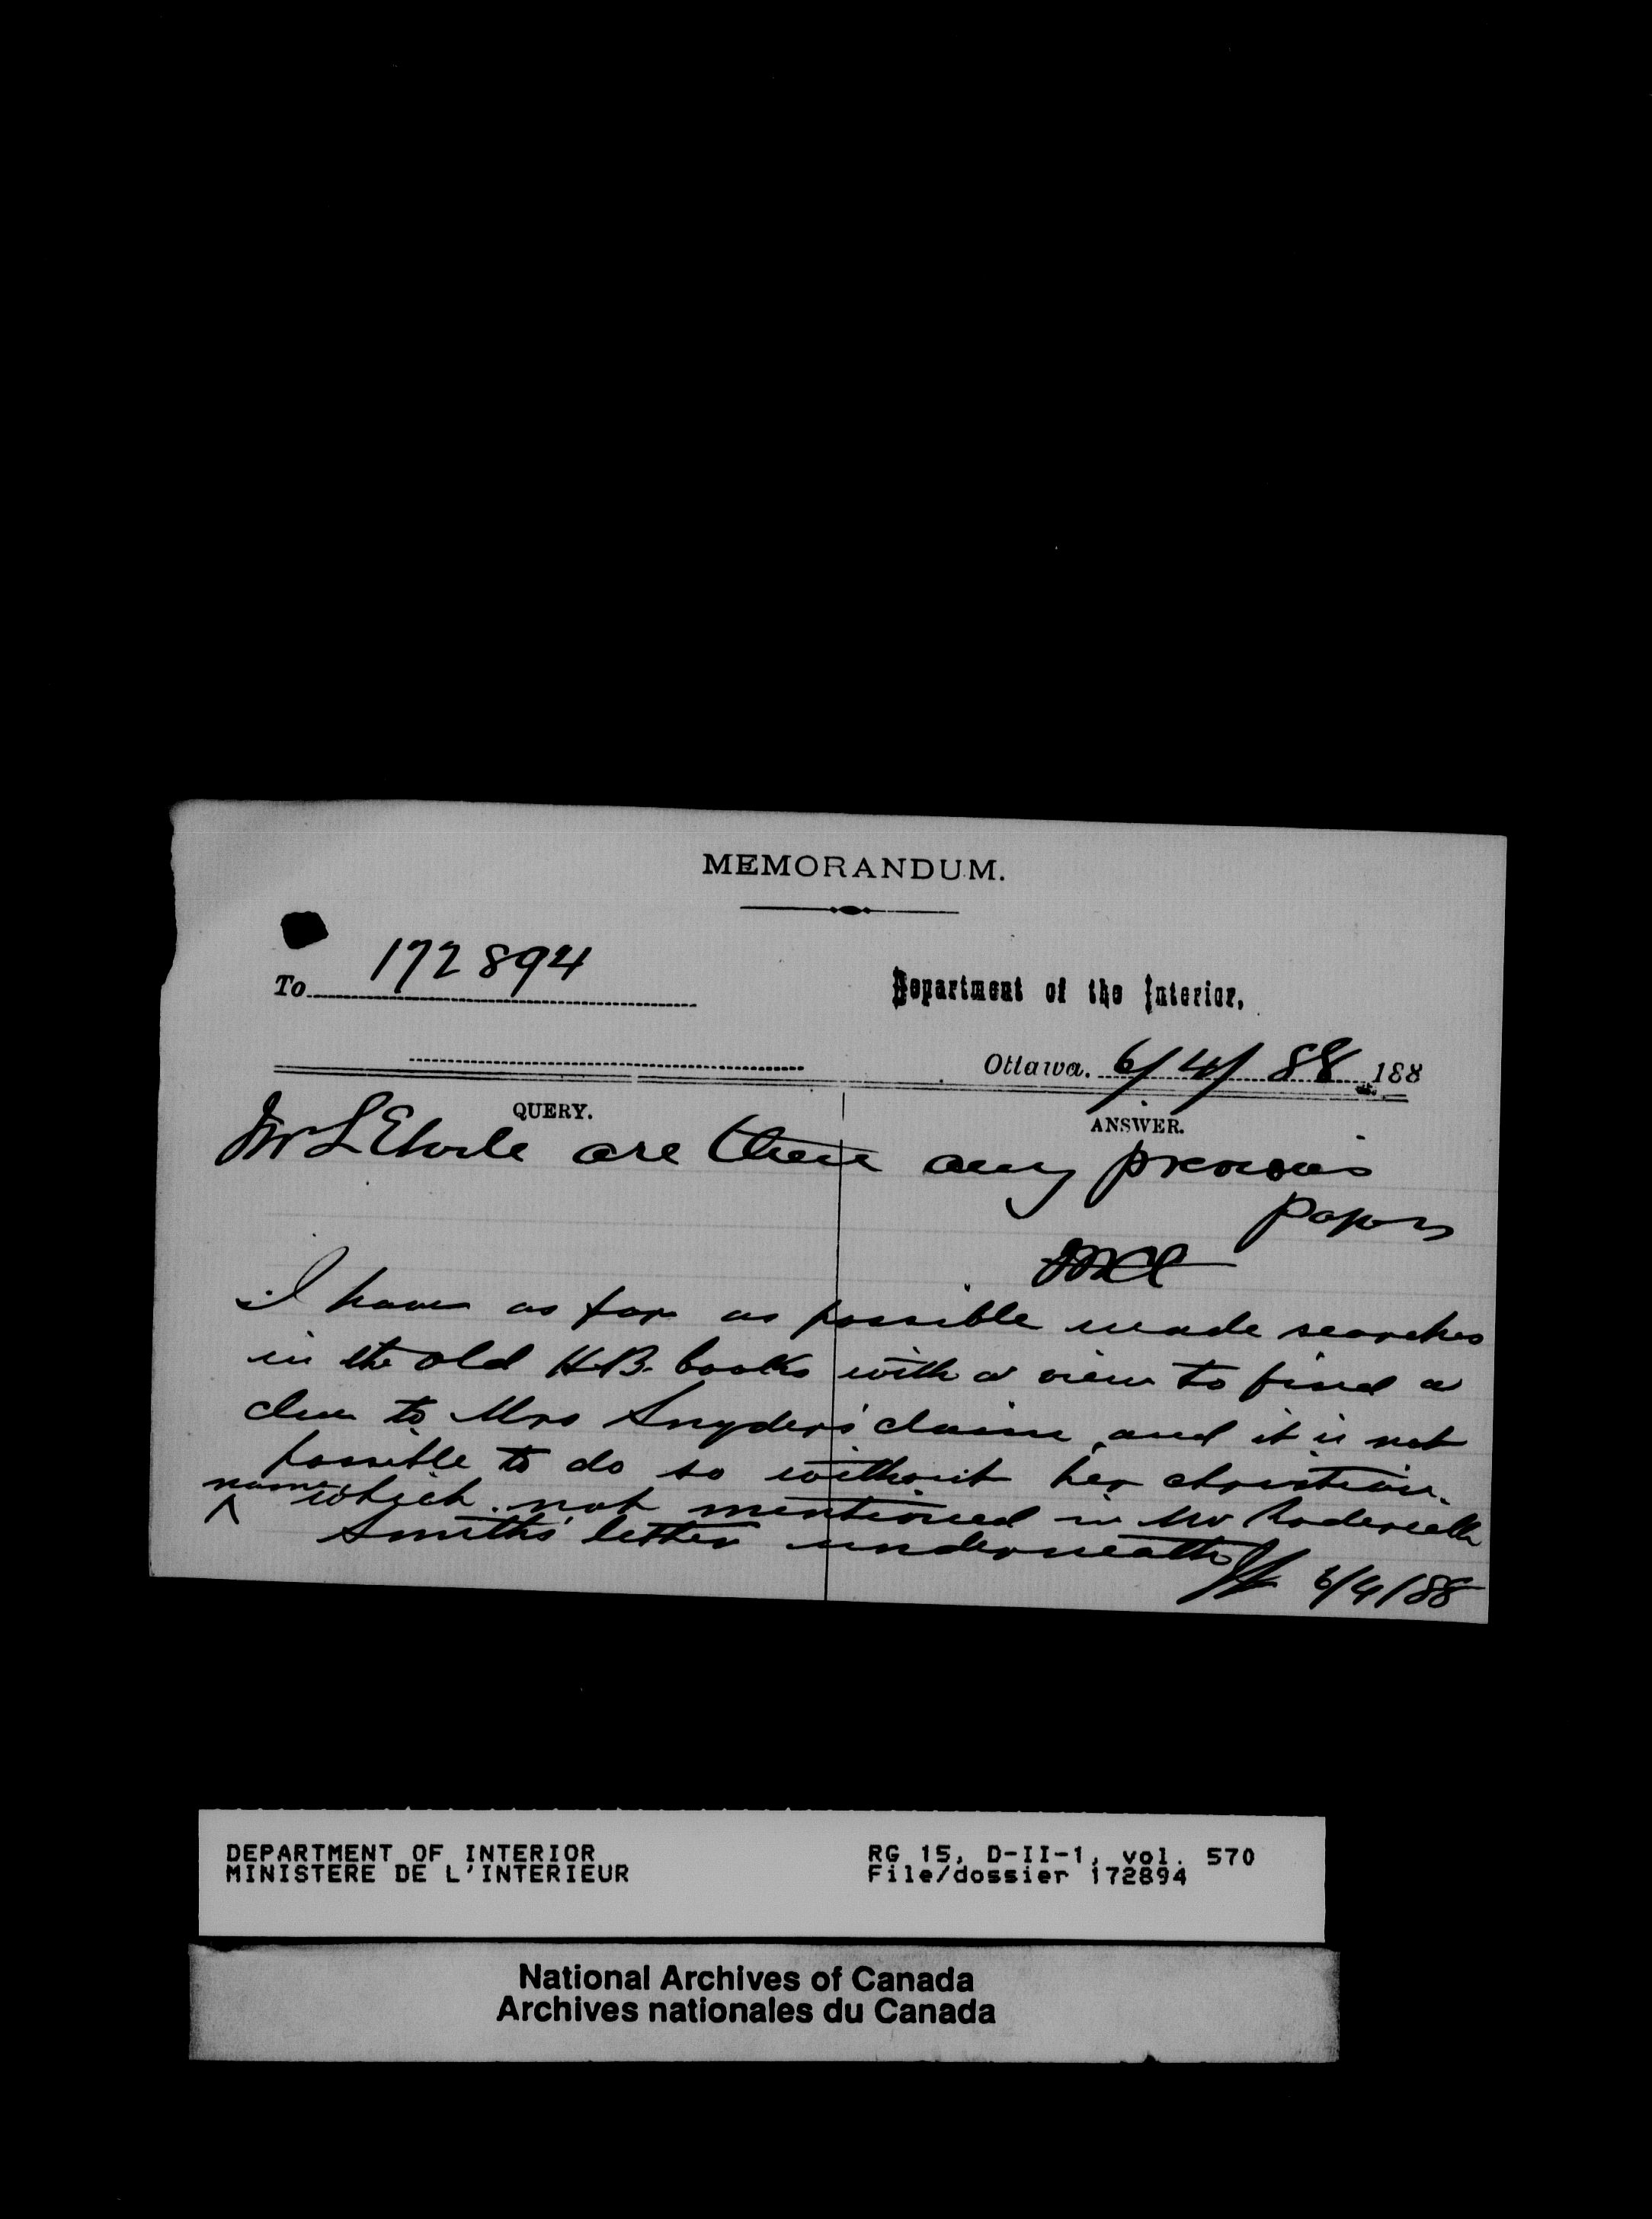 MEMORANDUM.
To 172894
Department of the Interior,
Ottawa. 6/4/88 188
QUERY.
ANSWER.
Mr are there any previous
papers
I have as far as possible made searches
in the old HB. books with a view to find a
clue to Mrs Snyders' claim and it is not
possible to do so without her christian
name which not mentioned in Mr
Smiths' letter underneath
6/4/88
DEPARTMENT OF INTERIOR
MINISTERE DE L'INTERIEUR
RG 15, D-II-1, vol. 570
File/dossier 172894
National Archives of Canada
Archives nationales du Canada